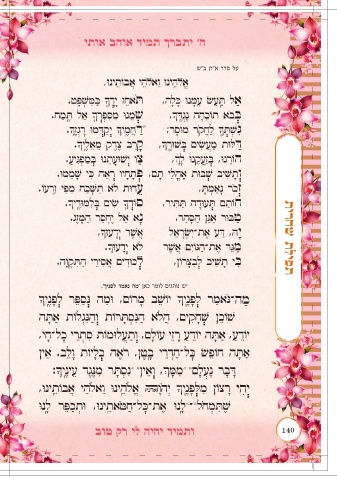 ה׳ יתברך תמיד אוהב אותי
על סדר א״ת ב״ש
אֱלֹהֵינוּ וֵאלֹהֵי אֲבוֹתֵינוּ.
אַל תַּעַשׂ עִמָּנוּ כָּלָה, תֹּאחֵז יָדְךָ בַּמִּשְׁפָּט.
בְּבֹא תוֹכֵחָה נֶגְדֶּךָ, שְׁמֵנוּ מִסִּפְרְךָ אַל תֶּמַח.
גִּשְׁתְּךָ לַחֲקֹר מוּסָר, רַחֲמֶיךָ יְקַדְּמוּ רָגְזֶךָ.
דַּלּוּת מַעֲשִׂים בְּשׁוּרֶךָ, קָרֵב צֶדֶק מֵאֵלֶיךָ.
הוֹרֵנוּ, בְּזַעֲקֵנוּ לָךְ, צַו יְשׁוּעָתֵנוּ בְּמַפְגִּיעַ.
וְתָשִׁיב שְׁבוּת אָהֳלֵי תָם, פְּתָחָיו רְאֵה כִּי שָׁמֵמוּ.
זְכֹר נָאַמְתָּ, עֵדוּת לֹא תִשָּׁכַח מִפִּי זַרְעוֹ.
חוֹתַם תְּעוּדָה תַּתִּיר, סוֹדְךָ שִׂים בְּלִמּוּדֶיךָ.
טַבּוּר אַגַּן הַסַּהַר, נָא אַל יֶחְסַר הַמָּזֶג.
יָהּ, דַּע אֶת־יִשְׂרָאֵל אֲשֶׁר יְדָעוּךָ,
מַגֵּר אֶת־הַגּוֹיִם אֲשֶׁר לֹא יְדָעוּךָ.
כִּי תָשִׁיב לְבִצָּרוֹן, לְכוּדִים אֲסִירֵי הַתִּקְוָה.
יש נוהגים לומר כאן ׳מה נאמר לפניך׳.
מַה־נֹּאמַר לְפָנֶיךָ יוֹשֵׁב מָרוֹם, וּמַה נְּסַפֵּר לְפָנֶיךָ
שׁוֹכֵן שְׁחָקִים, הֲלֹא הַנִּסְתָּרוֹת וְהַנִּגְלוֹת אַתָּה
יוֹדֵעַ, אַתָּה יוֹדֵעַ רָזֵי עוֹלָם, וְתַעֲלוּמוֹת סִתְרֵי כָל־חָי,
אַתָּה חוֹפֵשׂ כָּל־חַדְרֵי בָטֶן, רֹאֶה כְלָיוֹת וָלֵב. אֵין
דָּבָר נֶעְלָם־מִמָּךְ, וְאֵין־נִסְתָּר מִנֶּגֶד עֵינֶיךָ:
יְהִי רָצוֹן מִלְּפָנֶיךָ יְהֹוָה אֱלֹהֵינוּ וֵאלֹהֵי אֲבוֹתֵינוּ,
שֶׁתִּמְחוֹל־לָנוּ אֶת־כָּל־חַטֹּאתֵינוּ, וּתְכַפֵּר לָנוּ
ותמיד יהיה לי רק טוב
140
תפילת שחרית